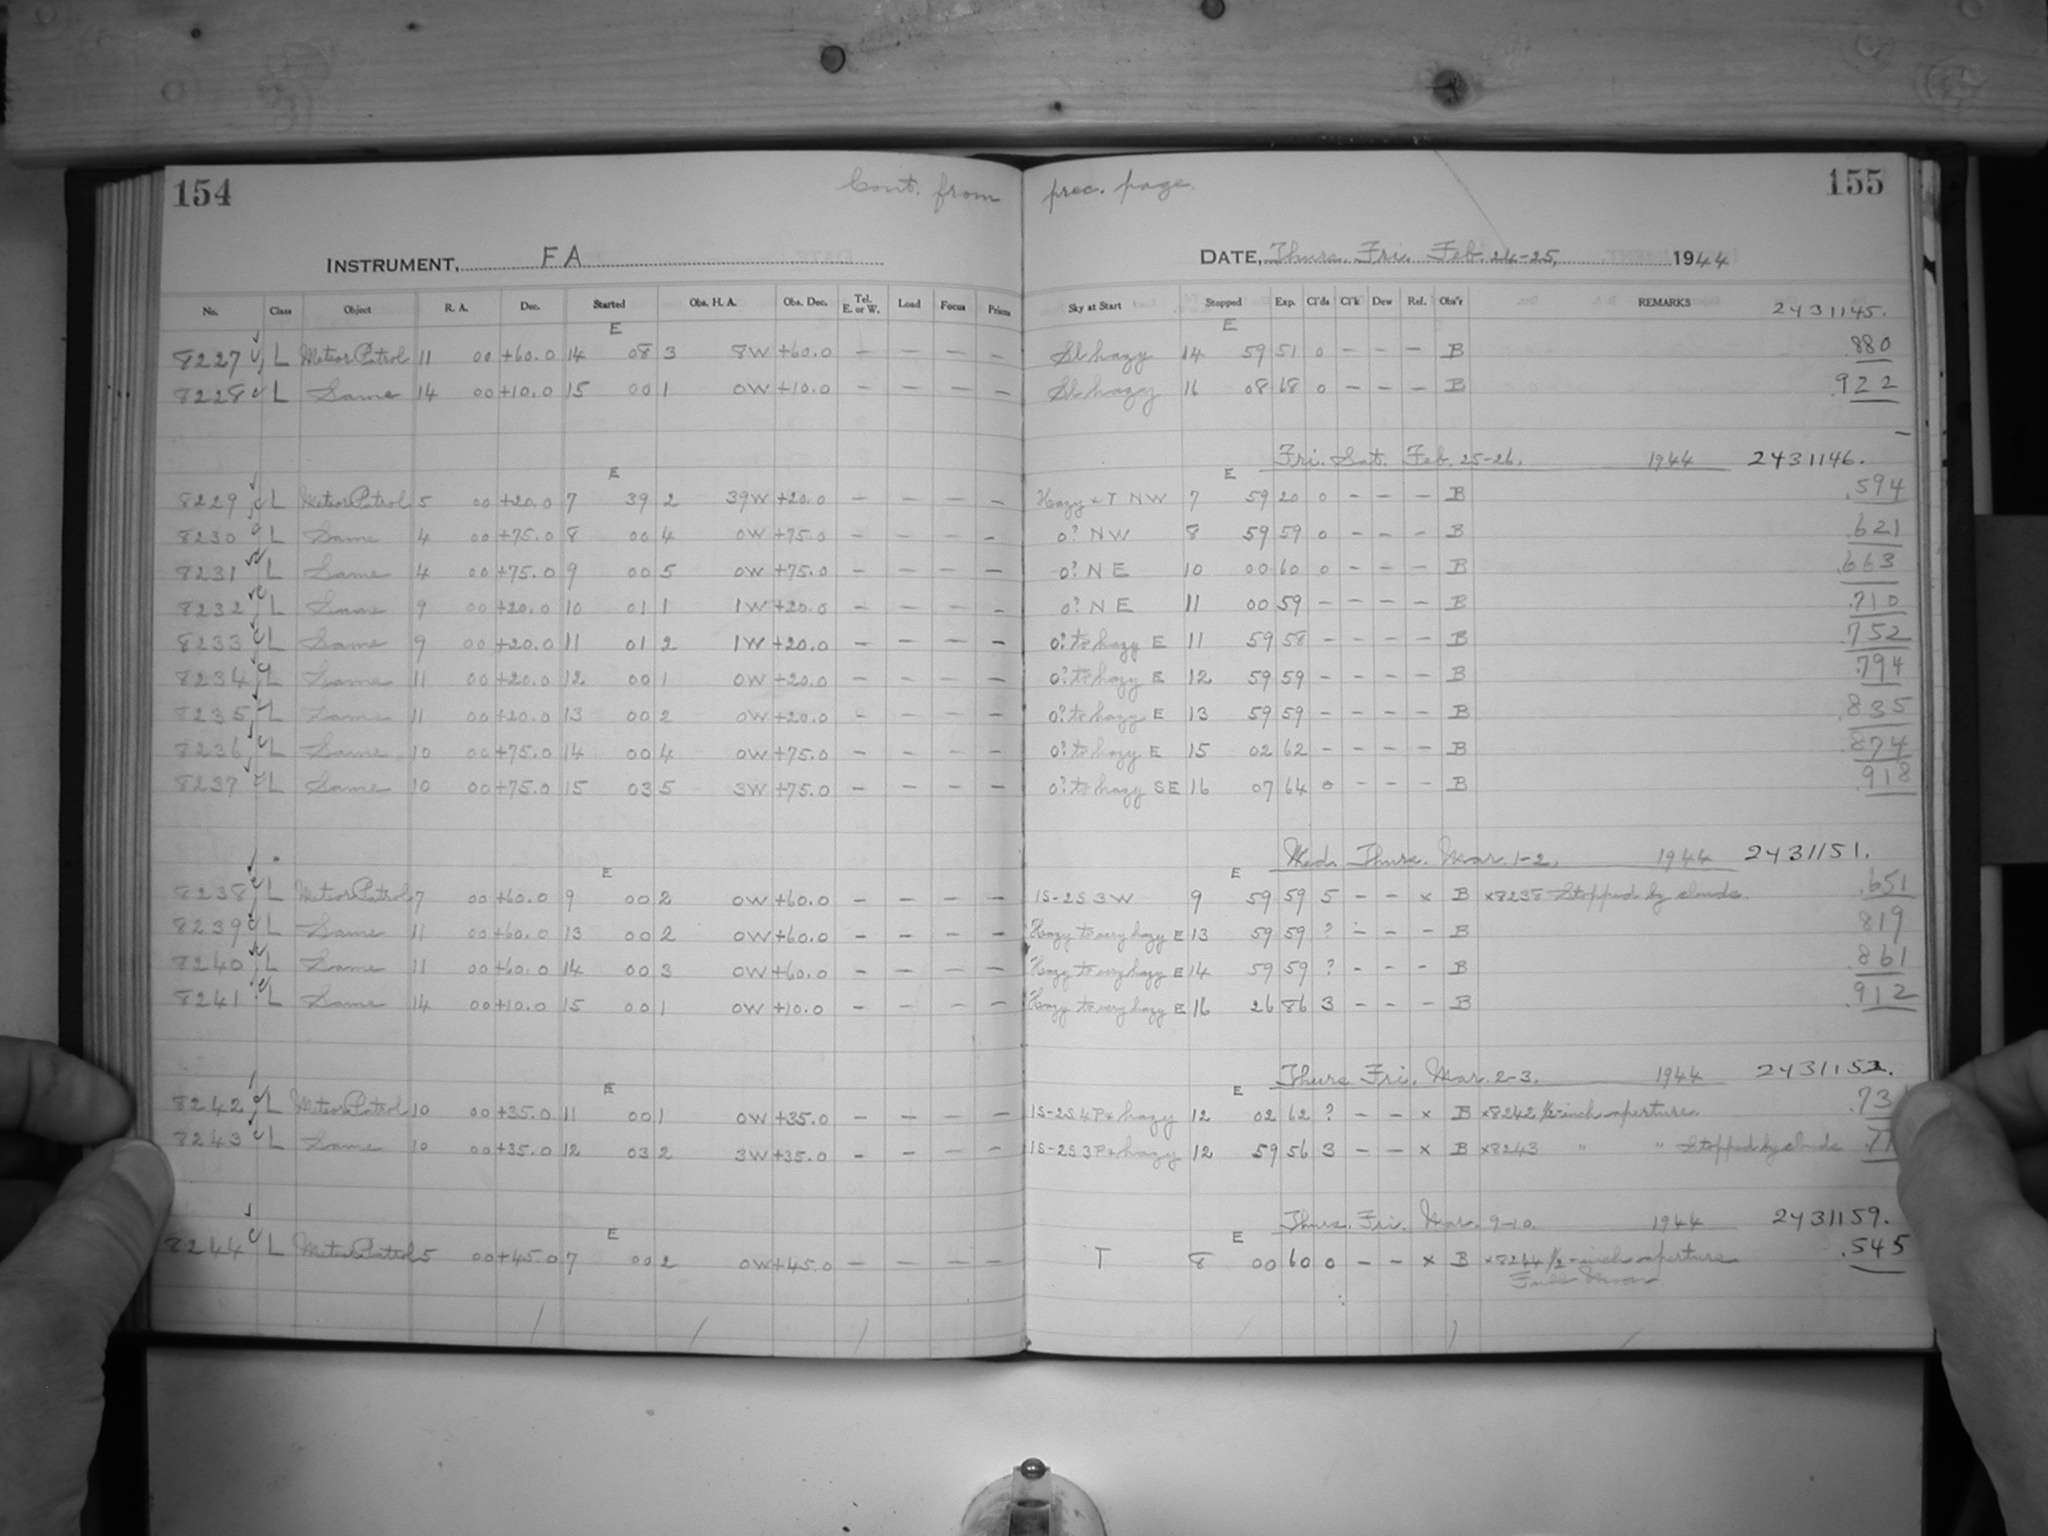 154 Cont. from prec. page. 155
INSTRUMENT, FA DATE, Thurs. Fri. Feb. 24-25, 1944
No. Class Object R. A. Dec. Started Obs. H. A. Obs. Dec. Tel. E. or W. Load Focus Prism Sky at Start Stopped Exp. Cl'ds Cl'k Dew Ref. Obs'r REMARKS 2431145.
E E
8227 L Meteor Patrol 11 00 +60.0 14 08 3 8W +60.0 – – – – Sl hazy 14 59 51 0 – – – B .880
8228 L Same 14 00 +10.0 15 00 1 0W +10.0 – – – – Sl hazy 16 08 68 0 – – – B .922
Fri. Sat. Feb. 25-26. 1944 2431146.
E E
8229 L Meteor Patrol 5 00 +20.0 7 39 2 39W +20.0 – – – – Hazy + T NW 7 59 20 0 – – – B .594
8230 L Same 4 00 +75.0 8 00 4 0W +75.0 – – – – 0? NW 8 59 59 0 – – – B .621
8231 L Same 4 00 +75.0 9 00 5 0W +75.0 – – – – 0? NE 10 00 60 0 – – – B .663
8232 L Same 9 00 +20.0 10 01 1 1W +20.0 – – – – 0? NE 11 00 59 – – – – B .710
8233 L Same 9 00 +20.0 11 01 2 1W +20.0 – – – – 0? to hazy E 11 59 58 – – – – B .752
8234 L Same 11 00 +20.0 12 00 1 0W +20.0 – – – – 0? to hazy E 12 59 59 – – – – B .794
8235 L Same 11 00 +20.0 13 00 2 0W +20.0 – – – – 0? to hazy E 13 59 59 – – – – B .835
8236 L Same 10 00 +75.0 14 00 4 0W +75.0 – – – – 0? to hazy E 15 02 62 – – – – B .874
8237 L Same 10 00 +75.0 15 03 5 3W +75.0 – – – – 0? to hazy SE 16 07 64 0 – – – B .918
Wed. Thurs. Mar. 1-2. 1944 2431151.
E E
8238 L Meteor Patrol 7 00 +60.0 9 00 2 0W +60.0 – – – – 1S-2S 3W 9 59 59 5 – – x B x8238 Stopped by clouds. .651
8239 L Same 11 00 +60.0 13 00 2 0W +60.0 – – – – Hazy to very hazy E 13 59 59 ? – – – B 819
8240 L Same 11 00 +60.0 14 00 3 0W +60.0 – – – – Hazy to very hazy E 14 59 59 ? – – – B .861
8241 L Same 14 00 +10.0 15 00 1 0W +10.0 – – – – Hazy to very hazy E 16 26 86 3 – – – B .912
Thurs Fri. Mar. 2-3. 1944 2431152.
E E
8242 L Meteor Patrol 10 00 +35.0 11 00 1 0W +35.0 – – – – 1S-2S 4P+ hazy 12 02 62 ? – – x B x8242 1/2-inch aperture. .73
8243 L Same 10 00 +35.0 12 03 2 3W +35.0 – – – – 1S-2S 3P+ hazy 12 59 56 3 – – x B x8243 " " Stopped by clouds .77
Thurs. Fri. Mar. 9-10. 1944 2431159.
E E
8244 L Meteor Patrol 5 00 +45.0 7 00 2 0W +45.0 – – – – T 8 00 60 0 – – x B x8244 1/2-inch aperture .545
Full Moon